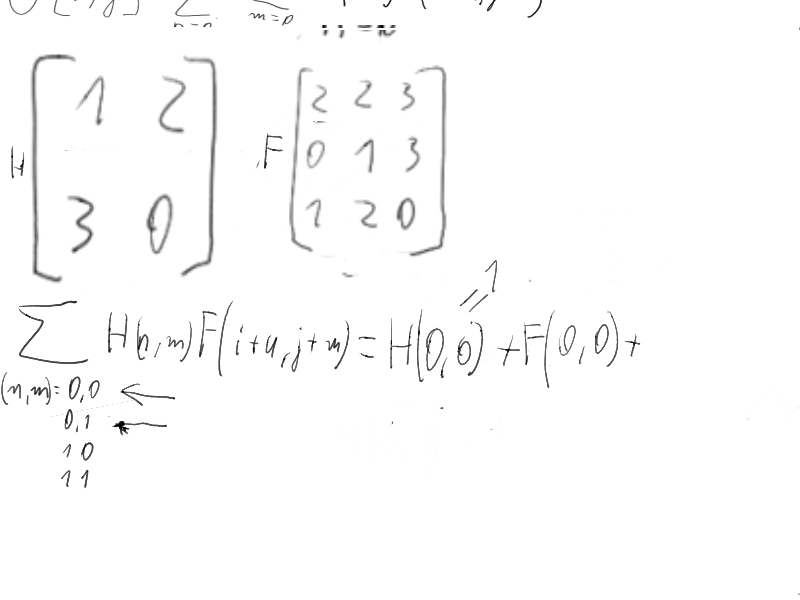 m=0
H [1 2
3 0]
F [2 2 3
0 1 3
1 2 0]
=1
∑ H(n,m)F(i+n,j+m) = H(0,0) + F(0,0) +
(n,m)= 0,0 ←
0,1 ←
1 0
1 1